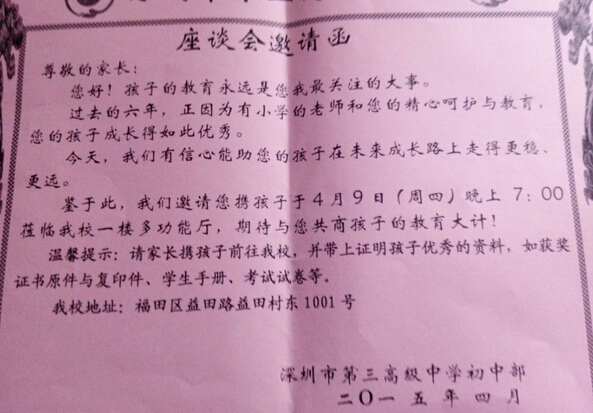 座谈会邀请函
尊敬的家长：
您好！孩子的教育永远是您我最关注的大事。
过去的六年，正因为有小学的老师和您的精心呵护与教育，
您的孩子成长得如此优秀。
今天，我们有信心能助您的孩子在未来成长路上走得更稳、
更远。
鉴于此，我们邀请您携孩子于4月9日（周四）晚上 7：00
莅临我校一楼多功能厅，期待与您共商孩子的教育大计！
温馨提示：请家长携孩子前往我校，并带上证明孩子优秀的资料，如获奖
证书原件与复印件、学生手册、考试试卷等。
我校地址：福田区益田路益田村东1001号
深圳市第三高级中学初中部
二〇一五年四月